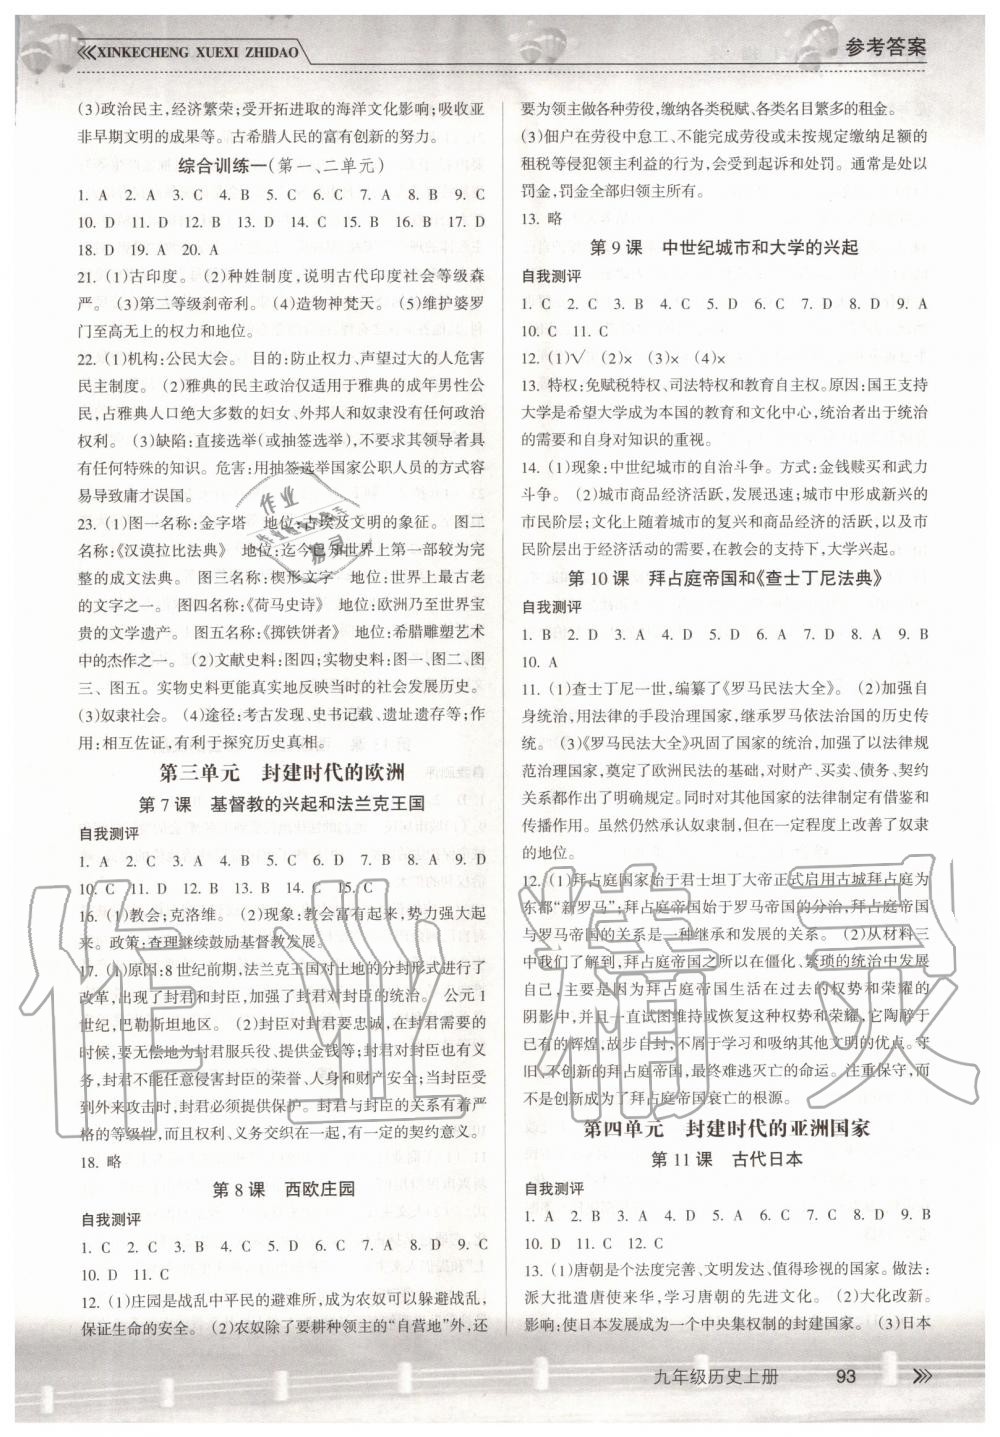 XINKECHENG XUEXI ZHIDAO
参考答案
(3)政治民主,经济繁荣;受开拓进取的海洋文化影响;吸收亚
非早期文明的成果等。古希腊人民的富有创新的努力。
综合训练一(第一、二单元)
1. A 2. A 3. C 4. B 5. C 6. C 7. A 8. B 9. C
10. D 11. D 12. B 13. D 14. C 15. B 16. B 17. D
18. D 19. A 20. A
21. (1)古印度。 (2)种姓制度,说明古代印度社会等级森
严。 (3)第二等级刹帝利。 (4)造物神梵天。 (5)维护婆罗
门至高无上的权力和地位。
22. (1)机构:公民大会。 目的:防止权力、声望过大的人危害
民主制度。 (2)雅典的民主政治仅适用于雅典的成年男性公
民,占雅典人口绝大多数的妇女、外邦人和奴隶没有任何政治
权利。 (3)缺陷:直接选举(或抽签选举),不要求其领导者具
有任何特殊的知识。危害:用抽签选举国家公职人员的方式容
易导致庸才误国。
23. (1)图一名称:金字塔 地位:古埃及文明的象征。 图二
名称:《汉谟拉比法典》 地位:迄今已知世界上第一部较为完
整的成文法典。 图三名称:楔形文字 地位:世界上最古老
的文字之一。 图四名称:《荷马史诗》 地位:欧洲乃至世界宝
贵的文学遗产。 图五名称:《掷铁饼者》 地位:希腊雕塑艺术
中的杰作之一。 (2)文献史料:图四;实物史料:图一、图二、图
三、图五。实物史料更能真实地反映当时的社会发展历史。
(3)奴隶社会。 (4)途径:考古发现、史书记载、遗址遗存等;作
用:相互佐证,有利于探究历史真相。
第三单元 封建时代的欧洲
第 7 课 基督教的兴起和法兰克王国
自我测评
1. A 2. C 3. A 4. B 5. C 6. D 7. B 8. A 9. D
10. C 11. D 12. B 13. B 14. C 15. C
16. (1)教会;克洛维。 (2)现象:教会富有起来,势力强大起
来。政策:查理继续鼓励基督教发展。
17. (1)原因:8 世纪前期,法兰克王国对土地的分封形式进行了
改革,出现了封君和封臣,加强了封君对封臣的统治。 公元 1
世纪,巴勒斯坦地区。 (2)封臣对封君要忠诚,在封君需要的
时候,要无偿地为封君服兵役、提供金钱等;封君对封臣也有义
务。封君不能任意侵害封臣的荣誉、人身和财产安全;当封臣受
到外来攻击时,封君必须提供保护。封君与封臣的关系有着严
格的等级性,而且权利、义务交织在一起,有一定的契约意义。
18. 略
第 8 课 西欧庄园
自我测评
1. C 2. C 3. B 4. B 5. C 6. D 7. A 8. D 9. C
10. D 11. C
12. (1)庄园是战乱中平民的避难所,成为农奴可以躲避战乱,
保证生命的安全。 (2)农奴除了要耕种领主的“自营地”外,还
要为领主做各种劳役,缴纳各类税赋、各类名目繁多的租金。
(3)佃户在劳役中怠工、不能完成劳役或未按时缴纳足额的
租税等侵犯领主利益的行为,会受到起诉和处罚。通常是处以
罚金,罚金全部归领主所有。
13. 略
第 9 课 中世纪城市和大学的兴起
自我测评
1. C 2. C 3. B 4. C 5. D 6. C 7. D 8. D 9. A
10. C 11. C
12. (1)√ (2)× (3)× (4)×
13. 特权:免赋税特权、司法特权和教育自主权。原因:国王支持
大学是希望大学成为本国的教育和文化中心,统治者出于统治
的需要和自身对知识的重视。
14. (1)现象:中世纪城市的自治斗争。方式:金钱赎买和武力
斗争。 (2)城市商品经济活跃,发展迅速;城市中形成新兴的
市民阶层;文化上随着城市的复兴和商品经济的活跃,以及市
民阶层出于经济活动的需要,在教会的支持下,大学兴起。
第 10 课 拜占庭帝国和《查士丁尼法典》
自我测评
1. B 2. D 3. A 4. D 5. D 6. A 7. D 8. A 9. B
10. A
11. (1)查士丁尼一世,编纂了《罗马民法大全》。 (2)加强自
身统治,用法律的手段治理国家,继承罗马依法治国的历史传
统。 (3)《罗马民法大全》巩固了国家的统治,加强了以法律规
范治国家,奠定了欧洲民法的基础,对财产、买卖、债务、契约
关系都作出了明确的规定,同时对其他国家的法律制定有借鉴和
传播作用。虽然仍然承认奴隶制,但在一定程度上改善了奴隶
的地位。
12. (1)拜占庭国家始于君士坦丁大帝正式启用古城拜占庭为
东都“新罗马”;拜占庭帝国始于罗马帝国的分治,拜占庭帝国
与罗马帝国的关系是一种继承和发展的关系。 (2)从材料三
中我们了解到,拜占庭帝国之所以在僵化、繁琐的统治中发展
自己,主要是因为拜占庭帝国生活在过去的权势和荣耀的
阴影中,并且一直试图维持或恢复这种权势和荣耀,它陶醉于
已有的辉煌,故步自封,不屑于学习和吸纳其他文明的优点。守
旧、不创新的拜占庭帝国,最终难逃灭亡的命运。注重保守,而
不是创新成了拜占庭帝国衰亡的根源。
第四单元 封建时代的亚洲国家
第 11 课 古代日本
自我测评
1. A 2. B 3. A 4. D 5. A 6. C 7. C 8. D 9. B
10. D 11. C 12. C
13. (1)唐朝是个法度完善、文明发达、值得珍视的国家。做法:
派大批遣唐使来华,学习唐朝的先进文化。 (2)大化改新。
影响:使日本发展成为一个中央集权制的封建国家。 (3)日本
九年级历史上册 93
作业精灵